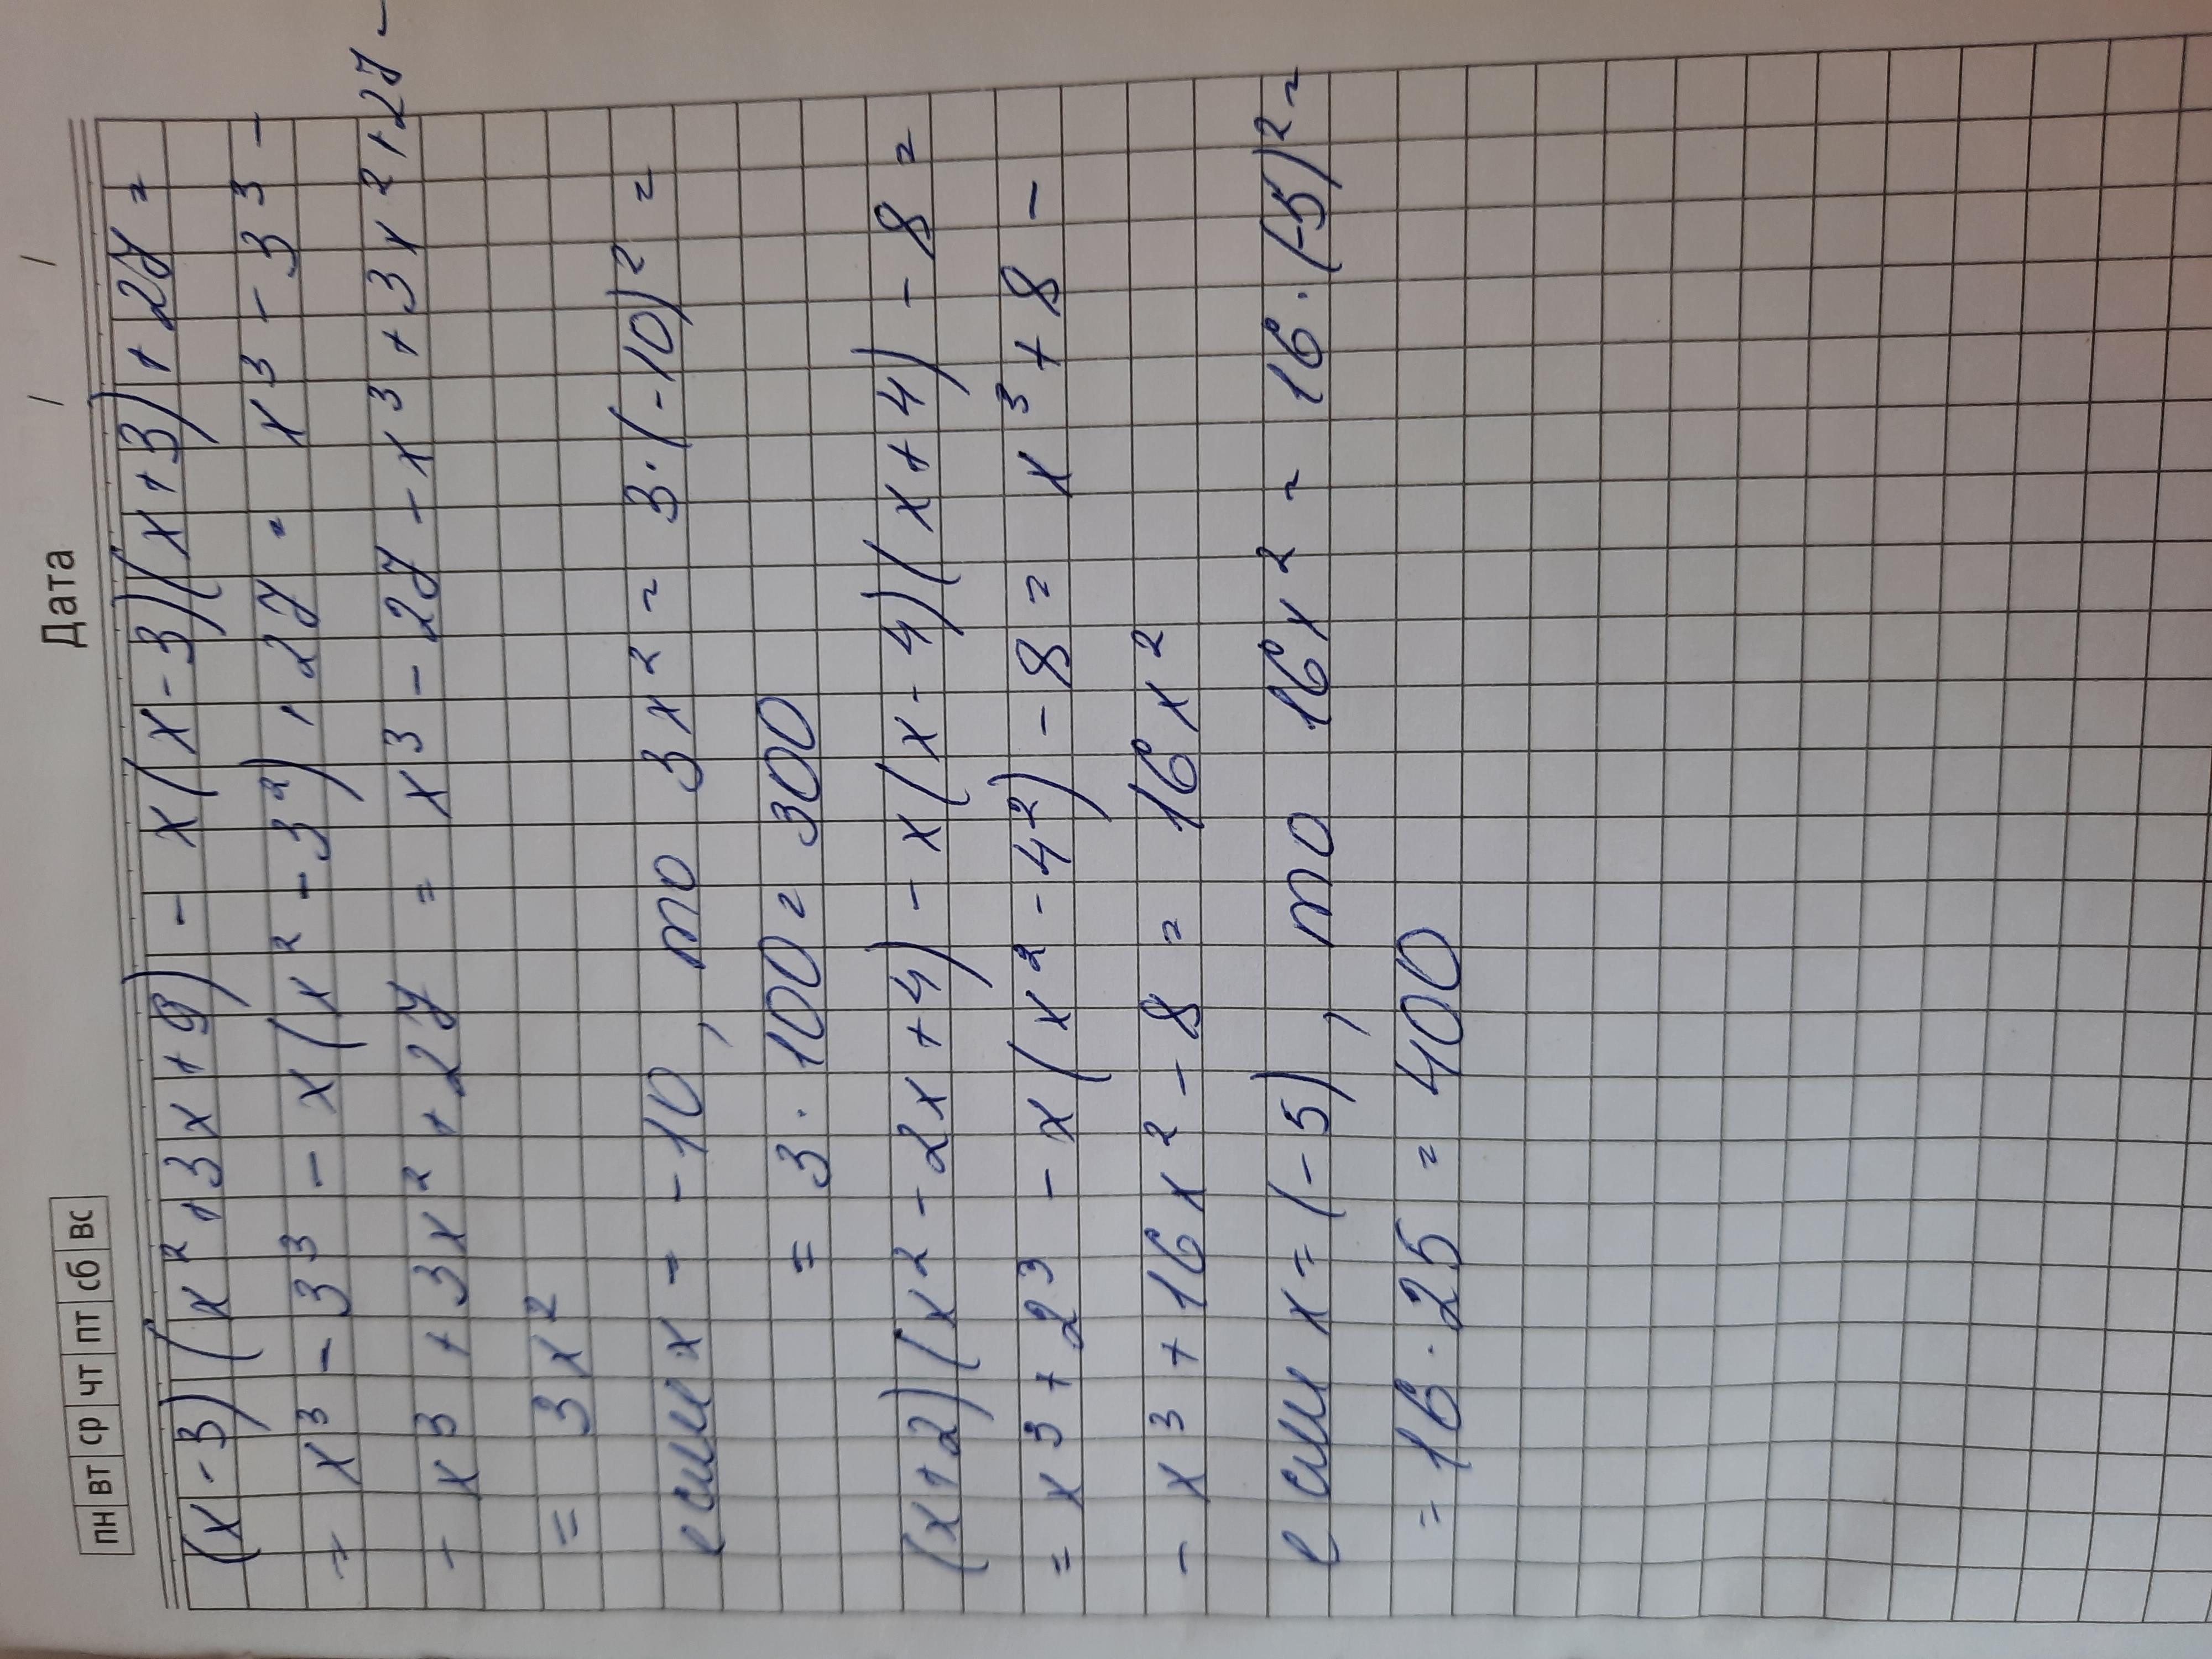 пн вт ср чт пт сб вс Дата / /
(x-3)(x²+3x+9) - x(x-3)(x+3)+27=
= x³-3³-x(x²-3²)+27= x³-3³-
- x³+3x²+27 = x³-27-x³+3x²+27-
= 3x²
если x = -10, то 3x² = 3·(-10)² =
= 3·100 = 300
(x+2)(x²-2x+4)-x(x-4)(x+4)-8=
= x³+2³-x(x²-4²)-8= x³+8-
- x³+16x²-8= 16x²
если x = (-5), то 16x² = 16·(-5)²=
= 16·25 = 400